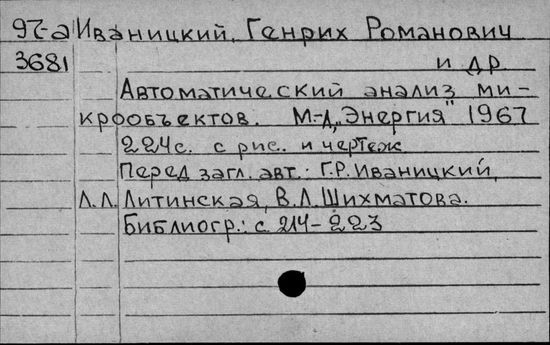 97-а Иваницкий, Генрих Романович
3681 и др
Автоматический анализ ми-
крообъектов. М-Л, „Энергия" 1967
224с. с рис. и чертеж
Перед загл. авт.: Г.Р. Иваницкий,
Л.Л. Литинская, В.Л. Шихматова.
Библиогр.: с 214-223